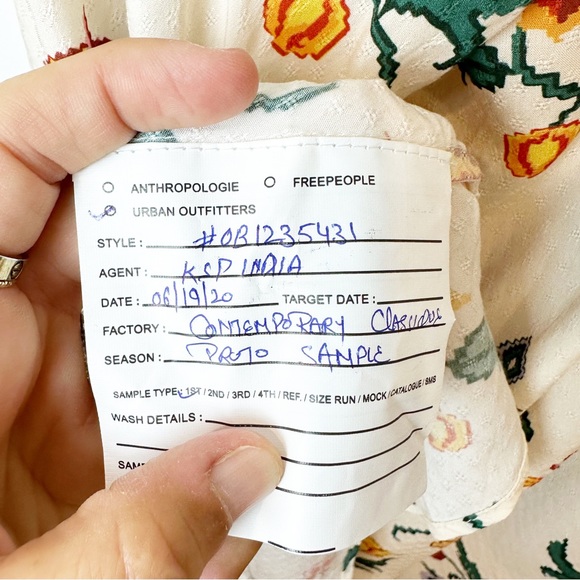 ANTHROPOLOGIE FREEPEOPLE
URBAN OUTFITTERS
STYLE : #OB1235431
AGENT : KSP INDIA
DATE : 06/19/20 TARGET DATE :
FACTORY : CONTEMPORARY
SEASON : PROTO SAMPLE
SAMPLE TYPE : 1ST / 2ND / 3RD / 4TH / REF. / SIZE RUN / MOCK / CATALOGUE / SMS
WASH DETAILS :
SAM